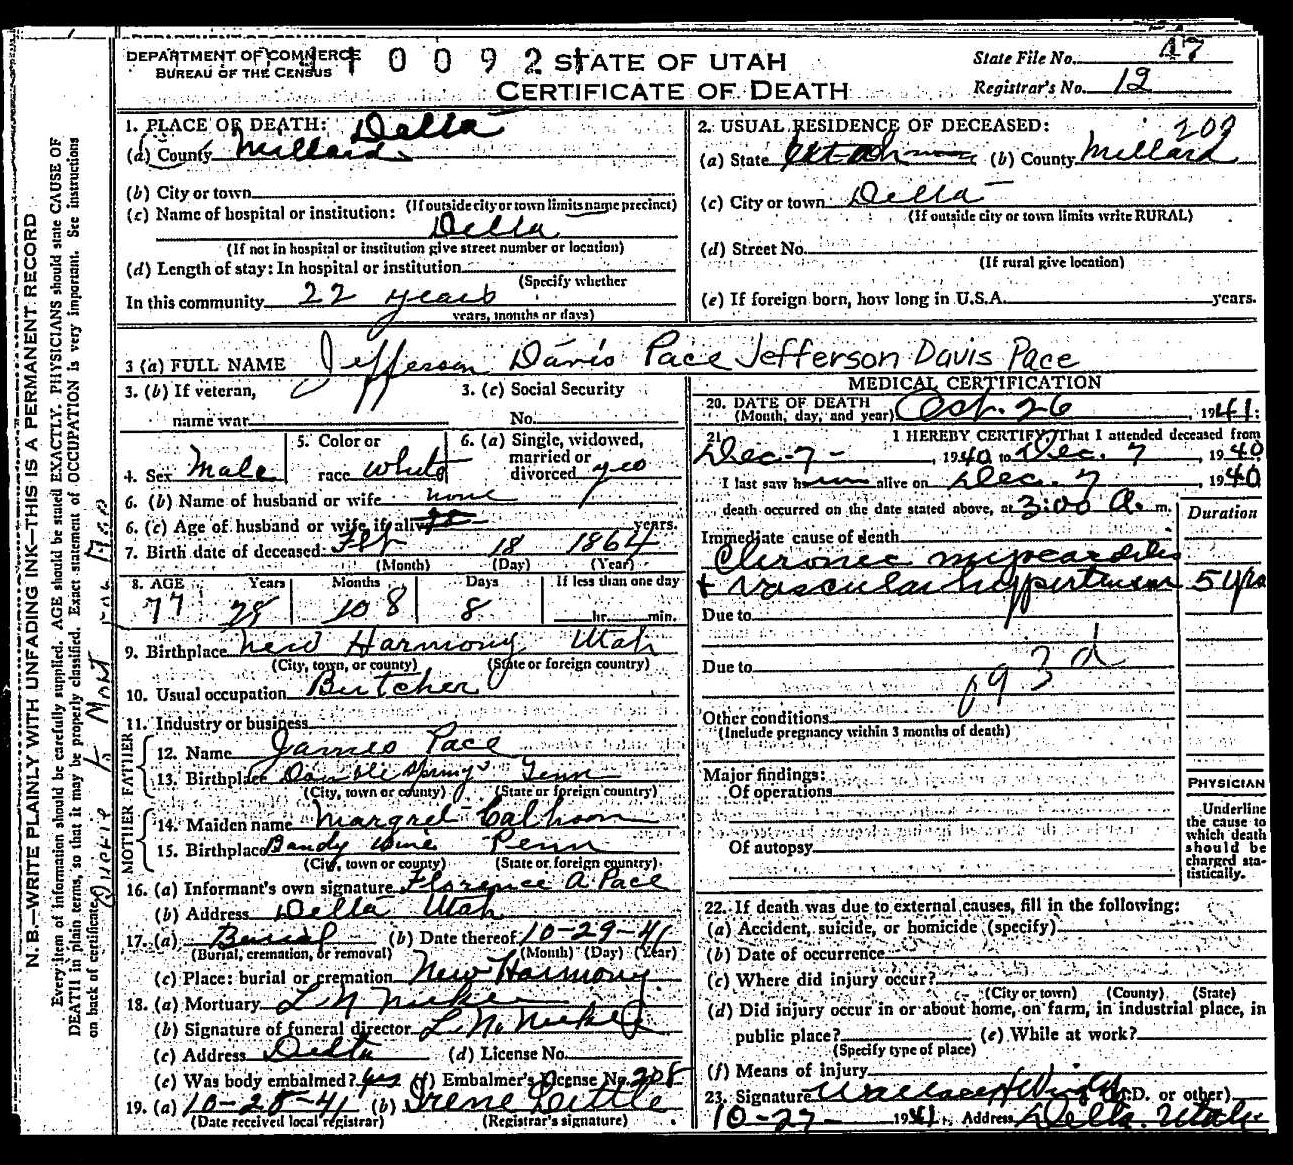 DEPARTMENT OF COMMERCE
BUREAU OF THE CENSUS
0 0 9 2
STATE OF UTAH
CERTIFICATE OF DEATH
State File No. 47
Registrar's No. 12
N.B.—WRITE PLAINLY WITH UNFADING INK—THIS IS A PERMANENT RECORD
Every item of information should be carefully supplied. AGE should be stated EXACTLY. PHYSICIANS should state CAUSE OF
DEATH in plain terms, so that it may be properly classified. Exact statement of OCCUPATION is very important. See instructions
on back of certificate.
1. PLACE OF DEATH: Delta
(a) County Millard
(b) City or town
(If outside city or town limits name precinct)
(c) Name of hospital or institution:
Delta
(If not in hospital or institution give street number or location)
(d) Length of stay: In hospital or institution
(Specify whether
In this community 22 years
years, months or days)
2. USUAL RESIDENCE OF DECEASED: 209
(a) State Utah (b) County Millard
(c) City or town Delta
(If outside city or town limits write RURAL)
(d) Street No.
(If rural give location)
(e) If foreign born, how long in U.S.A. years.
3 (a) FULL NAME Jefferson Davis Pace Jefferson Davis Pace
3. (b) If veteran,
name war
3. (c) Social Security
No.
4. Sex Male
5. Color or
race White
6. (a) Single, widowed,
married or
divorced yes
6. (b) Name of husband or wife none
6. (c) Age of husband or wife if alive years.
7. Birth date of deceased Feb 18 1864
(Month) (Day) (Year)
8. AGE Years Months Days If less than one day
77 78 10 8 8 hr. min.
9. Birthplace New Harmony Utah
(City, town, or county) (State or foreign country)
10. Usual occupation Butcher
11. Industry or business
FATHER
12. Name James Pace
13. Birthplace Double Springs Tenn
(City, town or county) (State or foreign country)
MOTHER
14. Maiden name Margret Calhoon
15. Birthplace Bandy Wine Penn
(City, town or county) (State or foreign country).
16. (a) Informant's own signature Florence A. Pace
(b) Address Delta Utah
17. (a) Burial (b) Date thereof 10-29-41
(Burial, cremation, or removal) (Month) (Day) (Year)
(c) Place: burial or cremation New Harmony
18. (a) Mortuary
(b) Signature of funeral director
(c) Address Delta (d) License No.
(e) Was body embalmed? yes (f) Embalmer's License No. 208
19. (a) 10-28-41 (b) Irene Little
(Date received local registrar) (Registrar's signature)
MEDICAL CERTIFICATION
20. DATE OF DEATH
(Month, day, and year) Oct. 26, 1941.
21. I HEREBY CERTIFY, That I attended deceased from
Dec-7-, 1940 to Dec. 7, 1940
I last saw h alive on Dec. 7, 1940
death occurred on the date stated above, at 3:00 A. m.
Duration
Immediate cause of death
Chronic myocarditis
+ vascular hypertension 5 yrs
Due to
Due to
93d
Other conditions
(Include pregnancy within 3 months of death)
Major findings:
Of operations
Of autopsy
PHYSICIAN
Underline
the cause to
which death
should be
charged sta-
tistically.
22. If death was due to external causes, fill in the following:
(a) Accident, suicide, or homicide (specify)
(b) Date of occurrence
(c) Where did injury occur?
(City or town) (County) (State)
(d) Did injury occur in or about home, on farm, in industrial place, in
public place? (e) While at work?
(Specify type of place)
(f) Means of injury
23. Signature Wallace H. (M.D. or other)
10-27- 1941. Address Delta. Utah